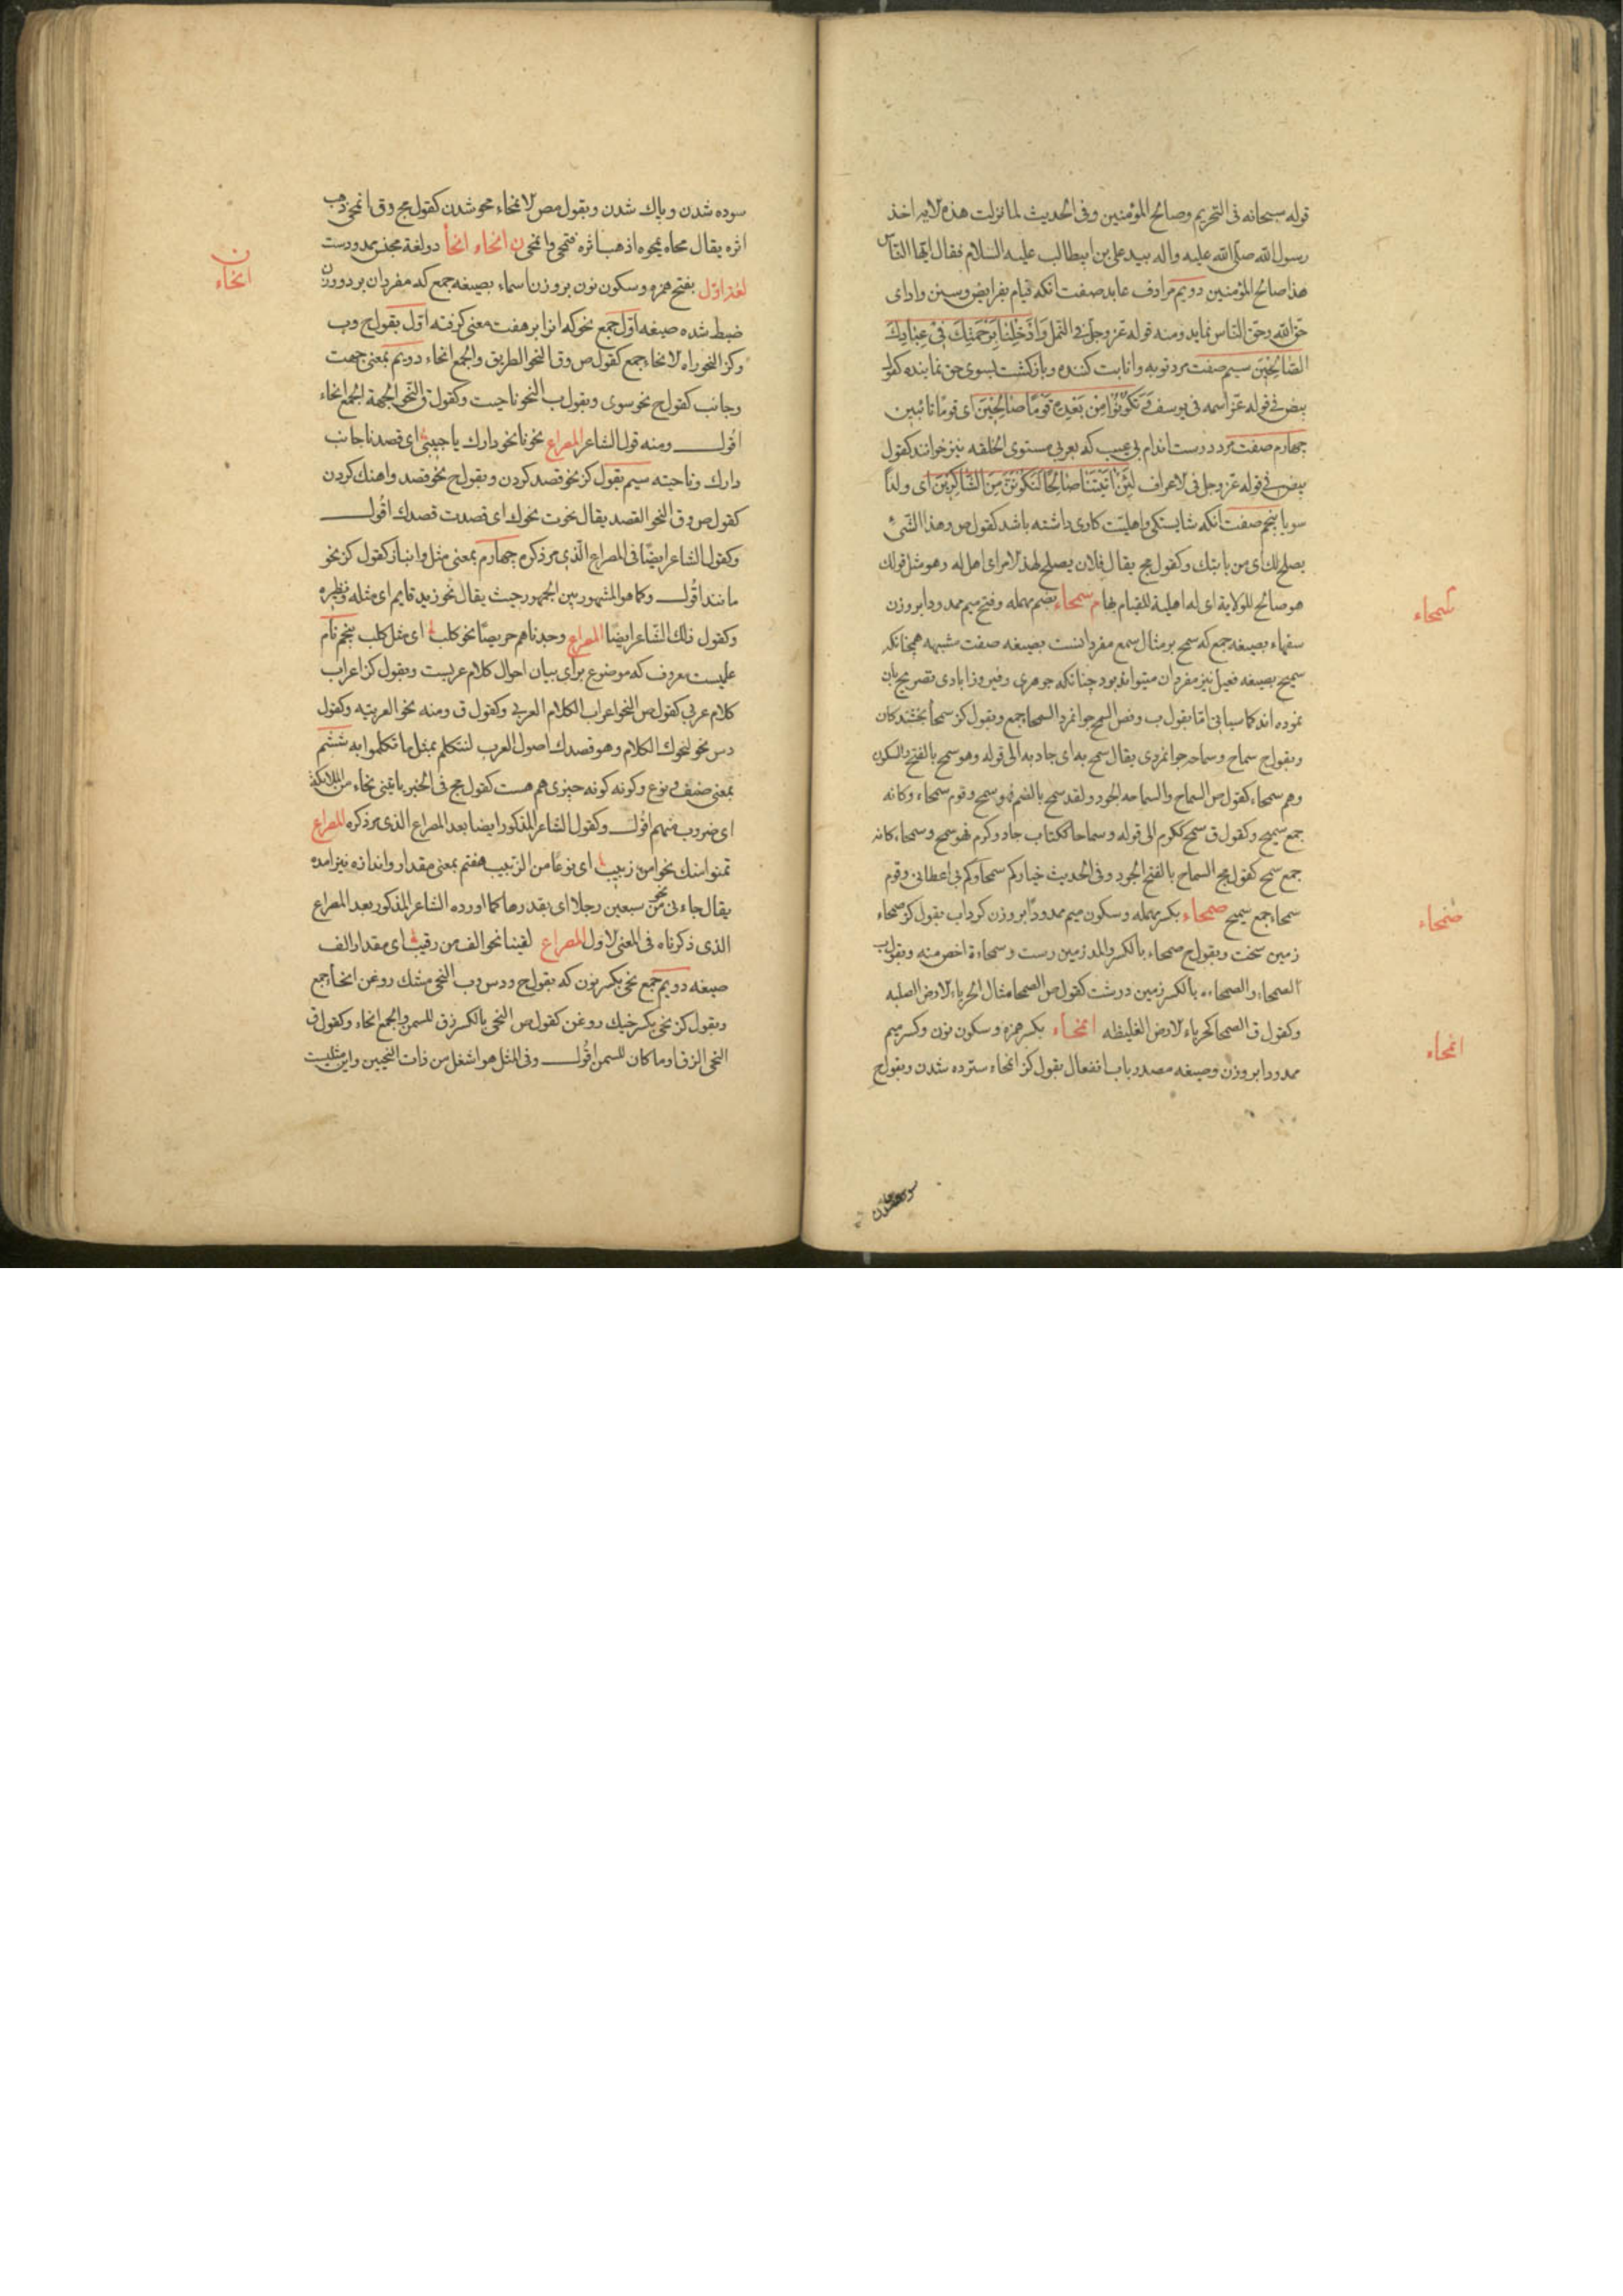 قوله سبحانه فی التحریم وصالح المؤمنین وفی الحدیث لما نزلت هذه الایه اخذ
رسول الله صلی الله علیه واله بید علی بن ابیطالب علیه السلام فقال ایها الناس
هذا صالح المؤمنین دویم مرادف عابد صفت انکه قیام بفرایض وسنن وادای
حق الله وحق الناس نماید ومنه قوله عز وجل فی النمل وَاَدْخِلْنا بِرَحْمَتِكَ فی عِبادِكَ
الصّالِحینَ سیم صفت مرد توبه وانابت کننده وبازکشت بسوی حق نماینده کقول
بیض فی قوله عز اسمه فی یوسف وَتَكُونُوا مِنْ بَعْدِهِ قَوْمًا صالِحینَ ای قوما تائبین
جهارم صفت مرد درست اندام بی عیب که بعربی مستوی الخلقه نیز خوانند کقول
بیض فی قوله عز وجل فی الاعراف لَئِنْ اتَیْتَنا صالِحًا لَنَكُونَنَّ مِنَ الشّاكِرینَ ای ولدا
سویا پنجم صفت انکه شایستکی واهلیت کاری داشته باشد کقول ص وهذا الشیء
یصلح لك ای من بابتك وکقول مج یقال فلان یصلح لهذا الامر ای اهل له وهو مثل قولك
هو صالح للولایة ای له اهلیة للقیام بها م سمحاء بضم مهمله وفتح میم ممدودا بروزن
سفهاء بصیغه جمع که سمح بر مثال سمع مفرد انست بصیغه صفت مشبهه همچنانکه
سمیح بصیغه فعیل نیز مفرد ان میتواند بود چنانکه جوهری وفیروزابادی تصریح بان
نموده اند کما سیاتی اما بقول ب وفض السمح جوانمرد السمحا جمع وبقول کز سمحا بخشندکان
وبقول ج سماح وسماحه جوانمردی یقال سمح به ای جاد به الی قوله وهو سمح بالفتح والسکون
وهم سمحاء کقول ص السماح والسماحه الجود ولقد سمح بالضم فهو سمح وقوم سمحاء وکانه
جمع سمیح وکقول ق سمح ککرم الی قوله وسماحا ککتاب جاد وکرم فهو سمح وسمحاء کانه
جمع سمیح کقول مج السماح بالفتح الجود وفی الحدیث خیارکم سمحاؤکم ای اعطانی وقوم
سمحاء جمع سمیح صمحاء بکسر مهمله وسکون میم ممدودا بروزن کرداب بقول کز صمحاء
زمین سخت وبقول ج صمحاء بالکسر والمد زمین رست وسمحاءة اخص منه وبقول ب
الصمحاء والصمحاء بالکسر زمین درشت کقول ص الصمحا مثال الحرباء الارض الصلبه
وکقول ق الصمحا کحرباء الارض الغلیظه انمحاء بکسر همزه وسکون نون وکسر میم
ممدودا بروزن وصیغه مصدر باب انفعال بقول کز انمحاء سترده شدن وبقول ج
سمحاء
صمحاء
انمحاء
سوده شدن
سوده شدن وپاك شدن وبقول مص الانمحاء محو شدن کقول مج وق انمحی ذهب
اثره یقال محاه یمحوه اذهب اثره فتمحی وانمحی ن انحاء انحا دو لغة مجنس ممدود ست
لغة اول بفتح همزه وسکون نون بروزن اسماء بصیغه جمع که مفرد ان بر دو وزن
ضبط شده صیغه اول جمع نحو که انرا بر هفت معنی کرفته اول بقول ج وب
وکز النحو راه الانحاء جمع کقول ص وق النحو الطریق والجمع انحاء دویم بمعنی جهت
وجانب کقول ج نحو سوی وبقول ب النحو ناحیت وکقول ق النحو الجهة الجمع انحاء
اقول ومنه قول الشاعر المصراع نحونا نحو دارك یا حبیبی ای قصدنا جانب
دارك وناحیته سیم بقول کز نحو قصد کردن وبقول ج نحو قصد واهنك کردن
کقول ص وق النحو القصد یقال نحوت نحوك ای قصدت قصدك اقول
وکقول الشاعر ایضا فی المصراع الذی مر ذکره جهارم بمعنی مثل وانباز کقول کز نحو
مانند اقول وکما هو المشهور بین الجمهور حیث یقال نحو زید قایم ای مثله ونظیره
وکقول ذلك الشاعر ایضا المصراع وجدناهم حریصا نحو کلب ای مثل کلب پنجم نام
علمیست معروف که موضوع برای بیان احوال کلام عربیست وبقول کز اعراب
کلام عربی کقول ص النحو اعراب الکلام العربی وکقول ق ومنه نحو العربیه وکقول
دس نحو لنحوك الکلام وهو قصدك اصول العرب لتتکلم بمثل ما تکلموا به ششم
بمعنی صنف ونوع وکونه کونه چیزی هم هست کقول مج فی الخبر یاتینی انحاء من الملائکة
ای ضروب منهم اقول وکقول الشاعر المذکور ایضا بعد المصراع الذی مر ذکره المصراع
تمنوا منك نحوا من زبیب ای نوعا من الزبیب هفتم بمعنی مقدار واندازه نیز امده
یقال جاءنی نحو من سبعین رجلا ای بقدرها کما اورده الشاعر المذکور بعد المصراع
الذی ذکرناه فی المعنی الاول المصراع لقینا نحو الف من رقیب ای مقدار الف
صیغه دویم جمع نحی بکسر نون که بقول ج ودس وب النحی مشك روغن انحاء جمع
وبقول کز نحی بکسر خیك روغن کقول ص النحی بالکسر زق للسمن والجمع انحاء وکقول ق
النحی الزق او ما کان للسمن اقول وفی المثل هو اشغل من ذات النحیین واین مثلیست
ن
انحاء